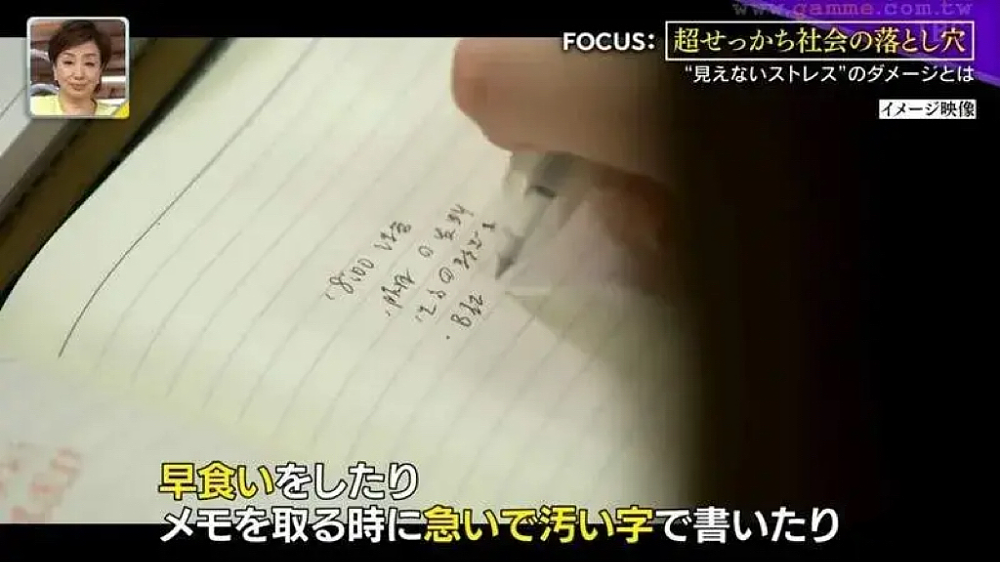 www.gamme.com.tw
FOCUS: 超せっかち社会の落とし穴
“見えないストレス”のダメージとは
イメージ映像
8:00
早食いをしたり
メモを取る時に急いで汚い字で書いたり